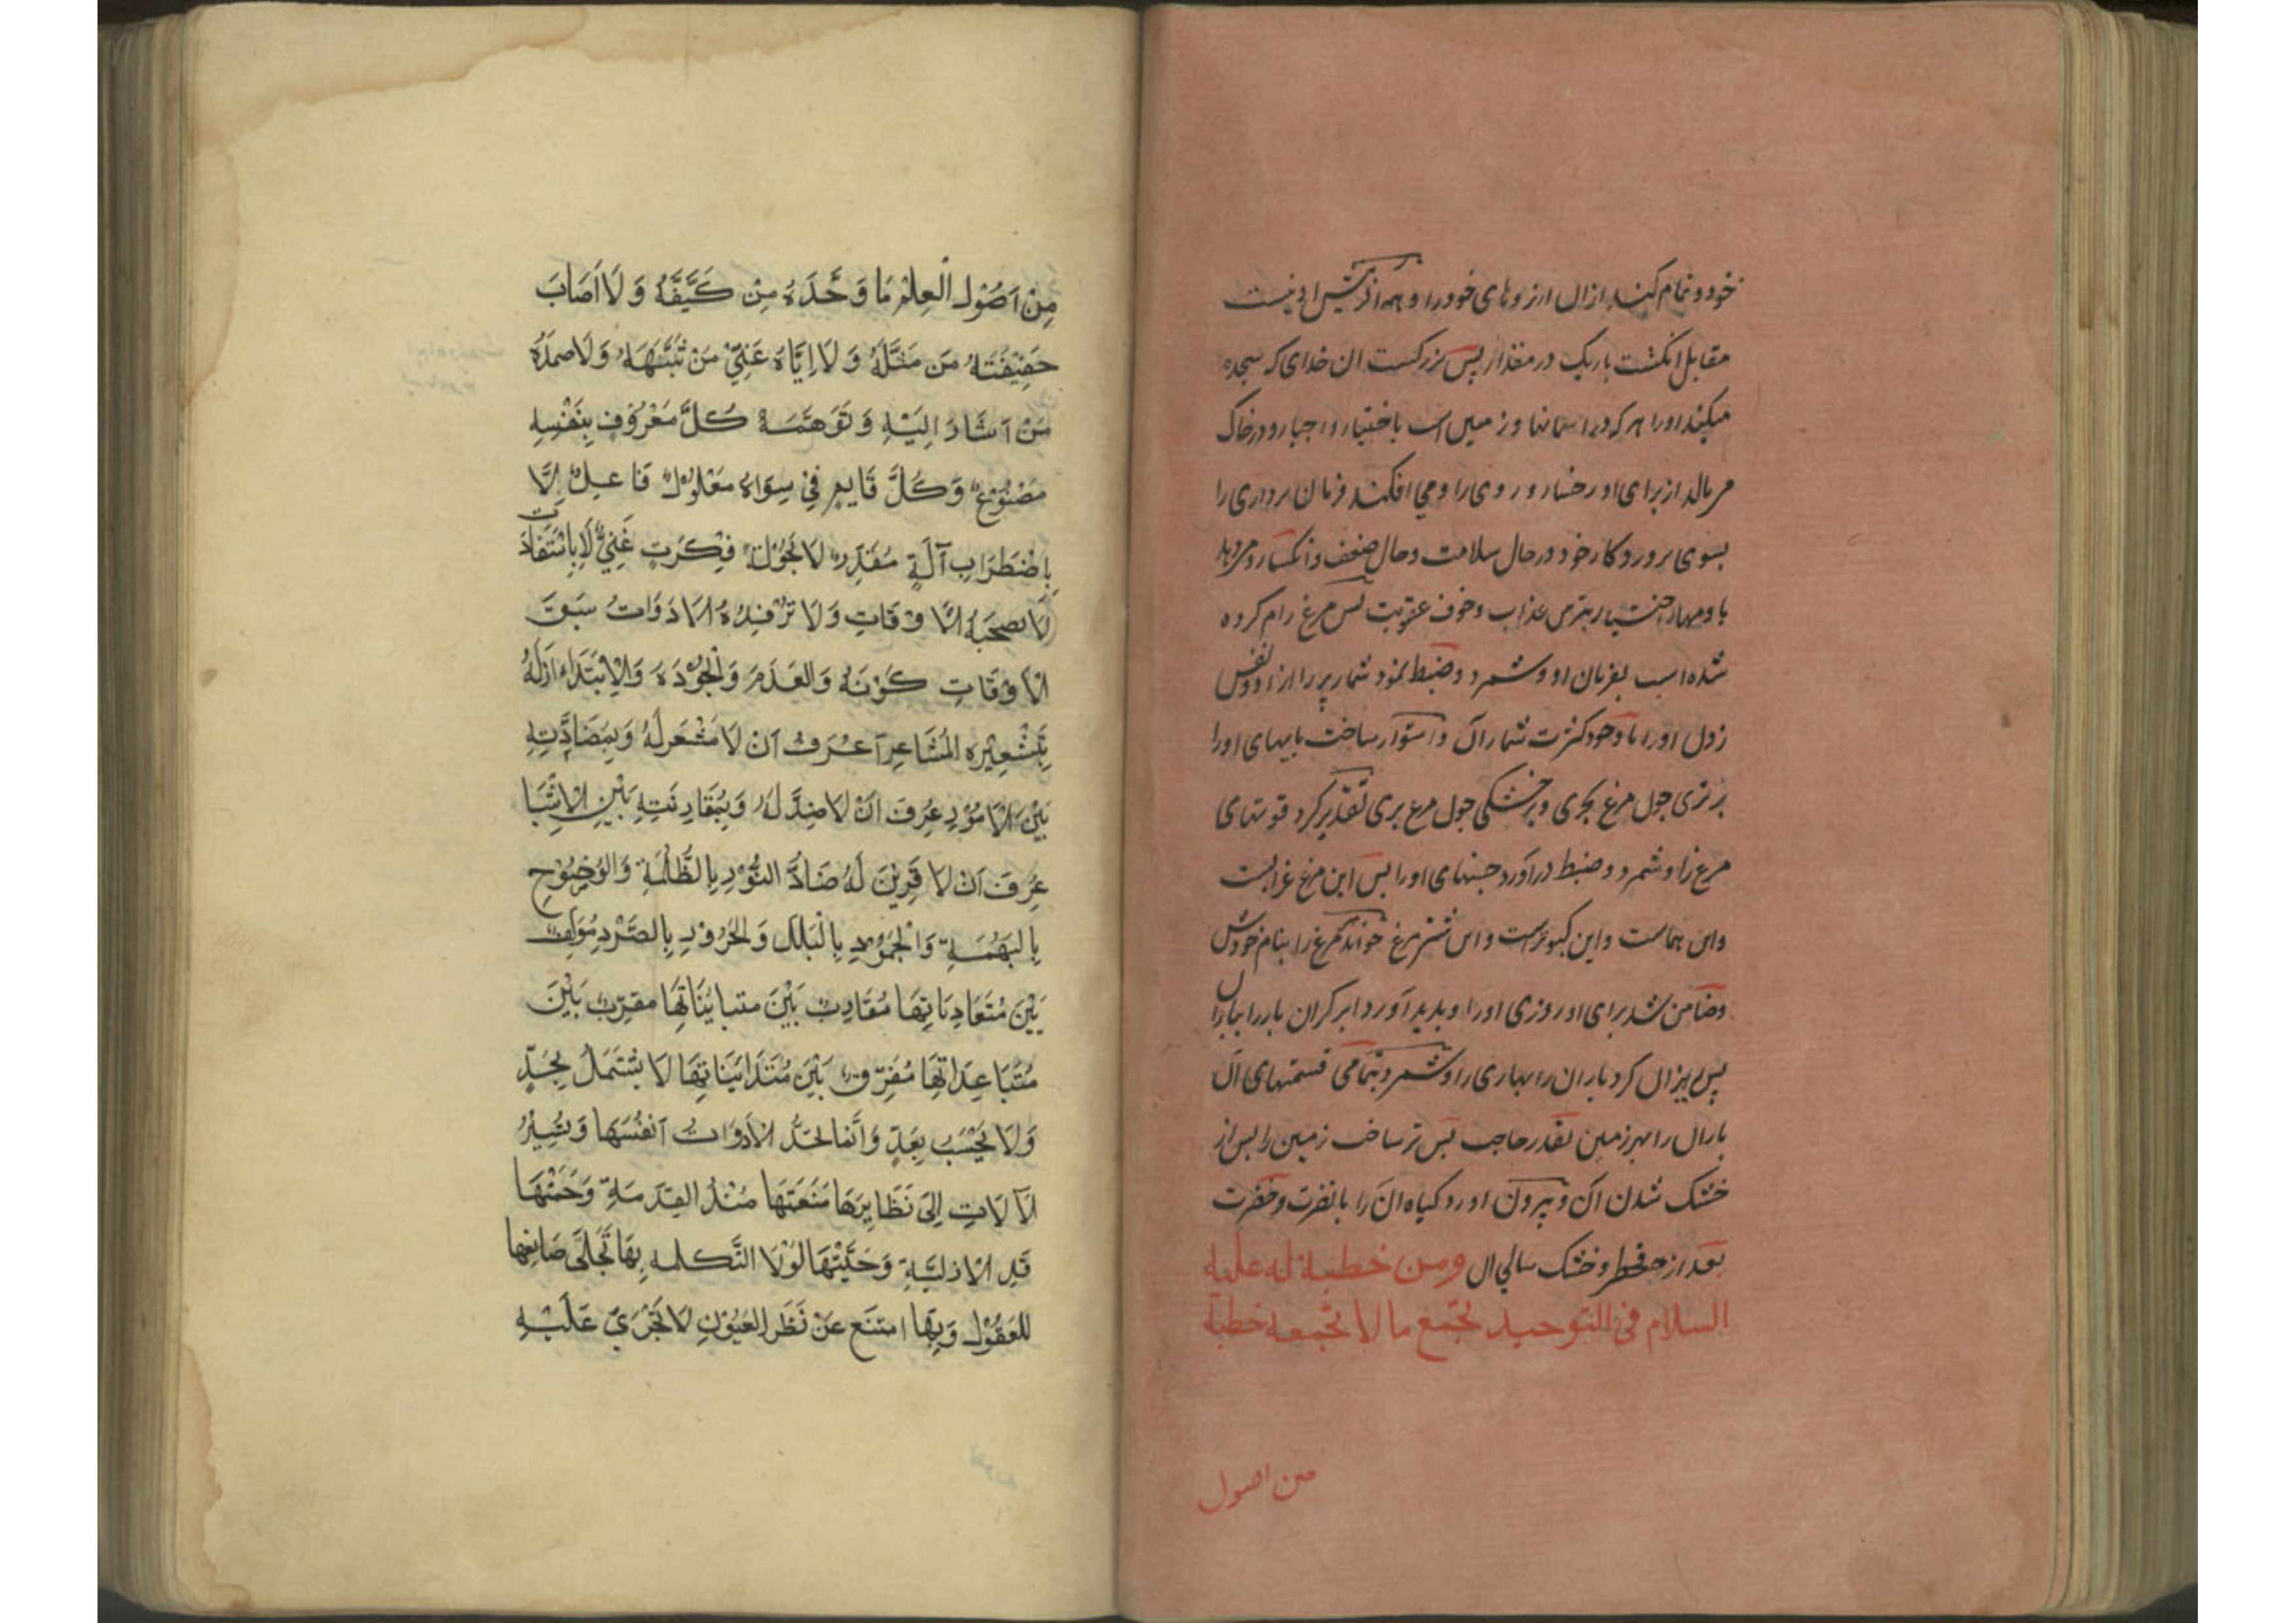 خود و تمام کند ازان ارزوهای خود را و همه افرینش او نیست
مقابل انکشت باریک در مقدار پس بزرکست ان خدای که سجده
میکند او را هر که در اسمانها و زمین است باختیار و اجبار و در خاک
می مالد از برای او رخسار و روی را و می افکند فرمان برداری را
بسوی پروردکار خود در حال سلامت و حال ضعف و انکسار و میدهد
با و مهار اختیار بترس عذاب و خوف عقوبت پس مرغ رام کرده
شده است بفرمان او و شمرد و ضبط نمود شمار پر را از او و نفس
زدن او را با وجود کثرت شمار آن و استوار ساخت پایهای او را
بر تری چون مرغ بحری و بر خشکی چون مرغ بری تقدیر کرد قوتهای
مرغ را و شمرد و ضبط در آورد جنسهای او را پس این مرغ غرابست
و این هماست و این کبوتر است و این شتر مرغ خواند مرغ را بنام خودش
و ضامن شد برای او روزی او را و پدید آورد ابر کران بار را بباران
پس ریزان کرد باران را بهاری را و شمرد و تمامی قسمتهای آن
باران را بهر زمین بقدر حاجب پس تر ساخت زمین را پس از
خشک شدن آن و بیرون اورد کیاه ان را با نضرت و خضرت
بعد از قحط و خشک سالی ان ومن خطبة له علیه
السلام فی التوحید تجمع ما لا تجمعه خطبة
من اصول
مِنْ اَصُوْلِ الْعِلْمِ مَا وَحَّدَهُ مِنْ كَيَّفَهُ وَلَا اَصَابَ
حَقِيْقَتَهُ مَن مَثَّلَهُ وَلَا اِيَّاهُ عَنِيَّ مَنْ شَبَّهَهَهُ وَلَا صَمَدَهُ
مَنْ اَشَارَ اِلَيْهِ وَ تَوَهَّمَهُ كُلُّ مَعْرُوْفٍ بِنَفْسِهِ
مَصْنُوْعٌ وَكُلُّ قَايِمٍ فِيْ سِوَاهُ مَعْلُوْلٌ فَاعِلٌ لَا
بِاضْطَرَابِ آلَةٍ مُقَدِّرٌ لَا بَجُوْلَةِ فِكْرَتٍ غَنِيٌّ لَا بِاسْتِفَادَت
لَا تَصْحَبُهُ الْاَوْقَاتِ وَلَا تَرْفِدُهُ الْاَدَوَاتُ سَبَقَ
الْاَوْقَاتِ كَوْنَهُ وَالعَدَمَ وَالْجُوُدَهُ وَالْاِبْتِدَاءَ اَزَلَهُ
بِتَشْعِيْرِهِ المُشَاعِرِ اَعُرِفَ اَنْ لَا مَشْعَرَلَهُ وَ بِمُضَادَّتِهِ
بَيْنَ الْاَمُوْرِ عُرِفَ اَنْ لَا ضِدَّ لَهُ وَ بِمُقَارِنَتِهِ بَيْنَ الْاَشْيَا
عُرِفَ اَنْ لَا قَرِيْنَ لَهُ ضَادَّ النُّوْرِ بِالظُّلْمَةِ وَالْوُضُوْحِ
بِالْبَهْمَةِ وَالْجُمُوْدِ بِالْبَلَلِ وَالْحَرُوْرِ بِالصَّرْدِ مُؤَلِّفٌ
بَيْنَ مُتَعَادِيَاتِهَا مُقَارِبٌ بَيْنَ مُتَبَايِنَاتِهَا مُقَرِّبٌ بَيْنَ
مُتَبَاعِدَاتِهَا مُفَرِّقٌ بَيْنَ مُتَدَانِيَاتِهَا لَا يَشْتَمِلُ بِحَدٍّ
وَلَا يَحْسَبُ بِعَدٍّ وَاِنَّمَا تَحُدُّ الْاَدَوَاتُ اَنْفُسَهَا وَتُشِيْرُ
الْاَلَاتِ اِلَى نَظَايِرِهَا مَنَعَتْهَا مُنْذُ القِدَمَةِ وَحَمَتْهَا
قَدِ الْاَزَلِيَّةِ وَجَنَّبَتْهَا لَوْلَا التَّكْلِمَةِ بِهَا تَجَلّى صَانِعِهَا
للعُقُوْلِ وَبِهَا امتَنَعَ عَنْ نَظَرِ العُيُوْنِ لَا تَجْرِيْ عَلَيْهِ